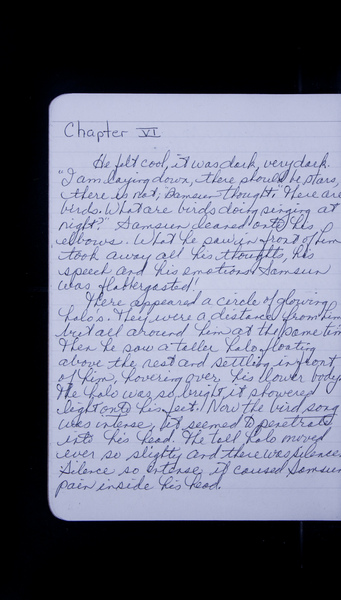 Chapter VI
He felt cool, it was dark, very dark.
"I am laying down, there should be stars,
there is not," Samsun thought, "There are
birds. What are birds doing singing at
night?" Samsun leaned onto his
elbows. What he saw in front of him
took away all his thoughts, his
speech and his emotions. Samsun
was flabbergasted!
There appeared a circle of glowing
halo's. They were a distance from him
but all around him at the same time.
Then he saw a taller halo floating
above the rest and settling in front
of him, hovering over his lower body.
The halo was so bright it showered
light onto his feet. Now the bird song
was intense, it seemed to penetrate
into his head. The tall halo moved
ever so slightly and there was silence.
Silence so intense it caused Samsun
pain inside his head.